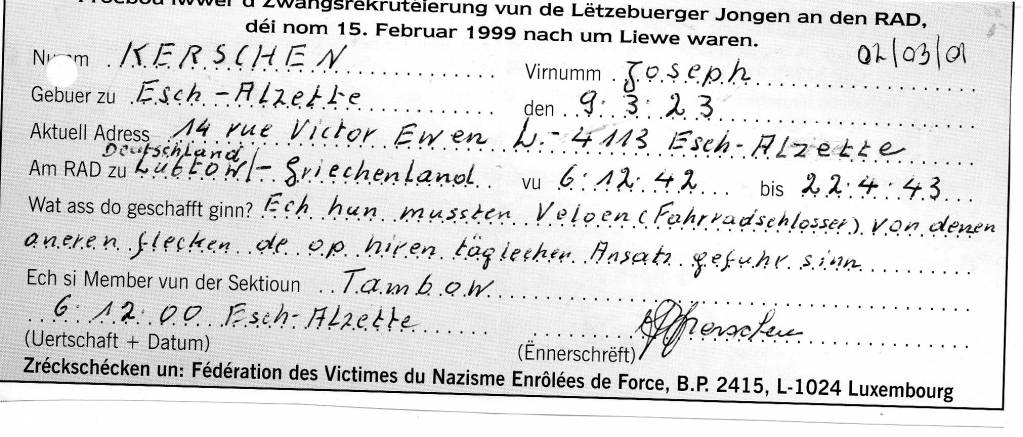 iwwer d'Zwangsrekrutéierung vun de Lëtzebuerger Jongen an den RAD,
déi nom 15. Februar 1999 nach um Liewe waren.
02/03/01
Numm KERSCHEN Virnumm Joseph
Gebuer zu Esch-Alzette den 9.3.23
Aktuell Adress 14 rue Victor Ewen L.-4113 Esch-Alzette
Deutschland
Am RAD zu Lübtow/-Griechenland vu 6.12.42 bis 22.4.43
Wat ass do geschafft ginn? Ech hun mussten Veloen (Fahrradschlosser) von denen
aneren flecken de op hiren täglechen Ansatz gefuhr sinn
Ech si Member vun der Sektioun Tambow
6.12.00 Esch-Alzette
(Uertschaft + Datum) (Ënnerschrëft)
Zréckschécken un: Fédération des Victimes du Nazisme Enrôlées de Force, B.P. 2415, L-1024 Luxembourg